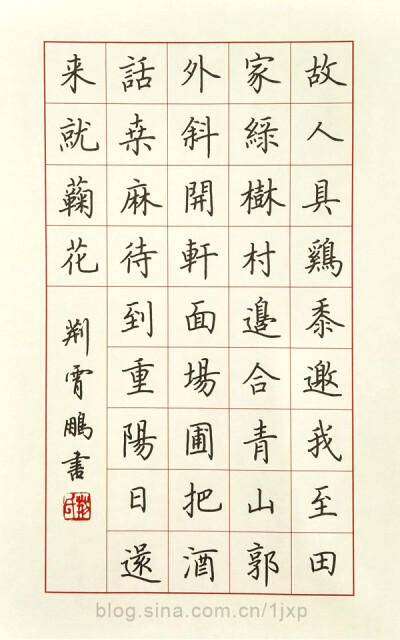 故人具鷄黍邀我至田
家綠樹村邊合青山郭
外斜開軒面場圃把酒
話桒麻待到重陽日還
来就蘜花
荆霄鵬書
blog.sina.com.cn/1jxp